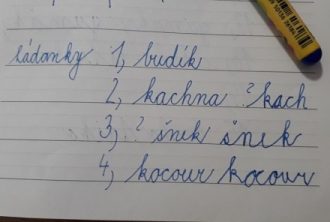 hádanky 1, budík
2, kachna ?kach
3, ? šnek šnek
4, kocour kocour